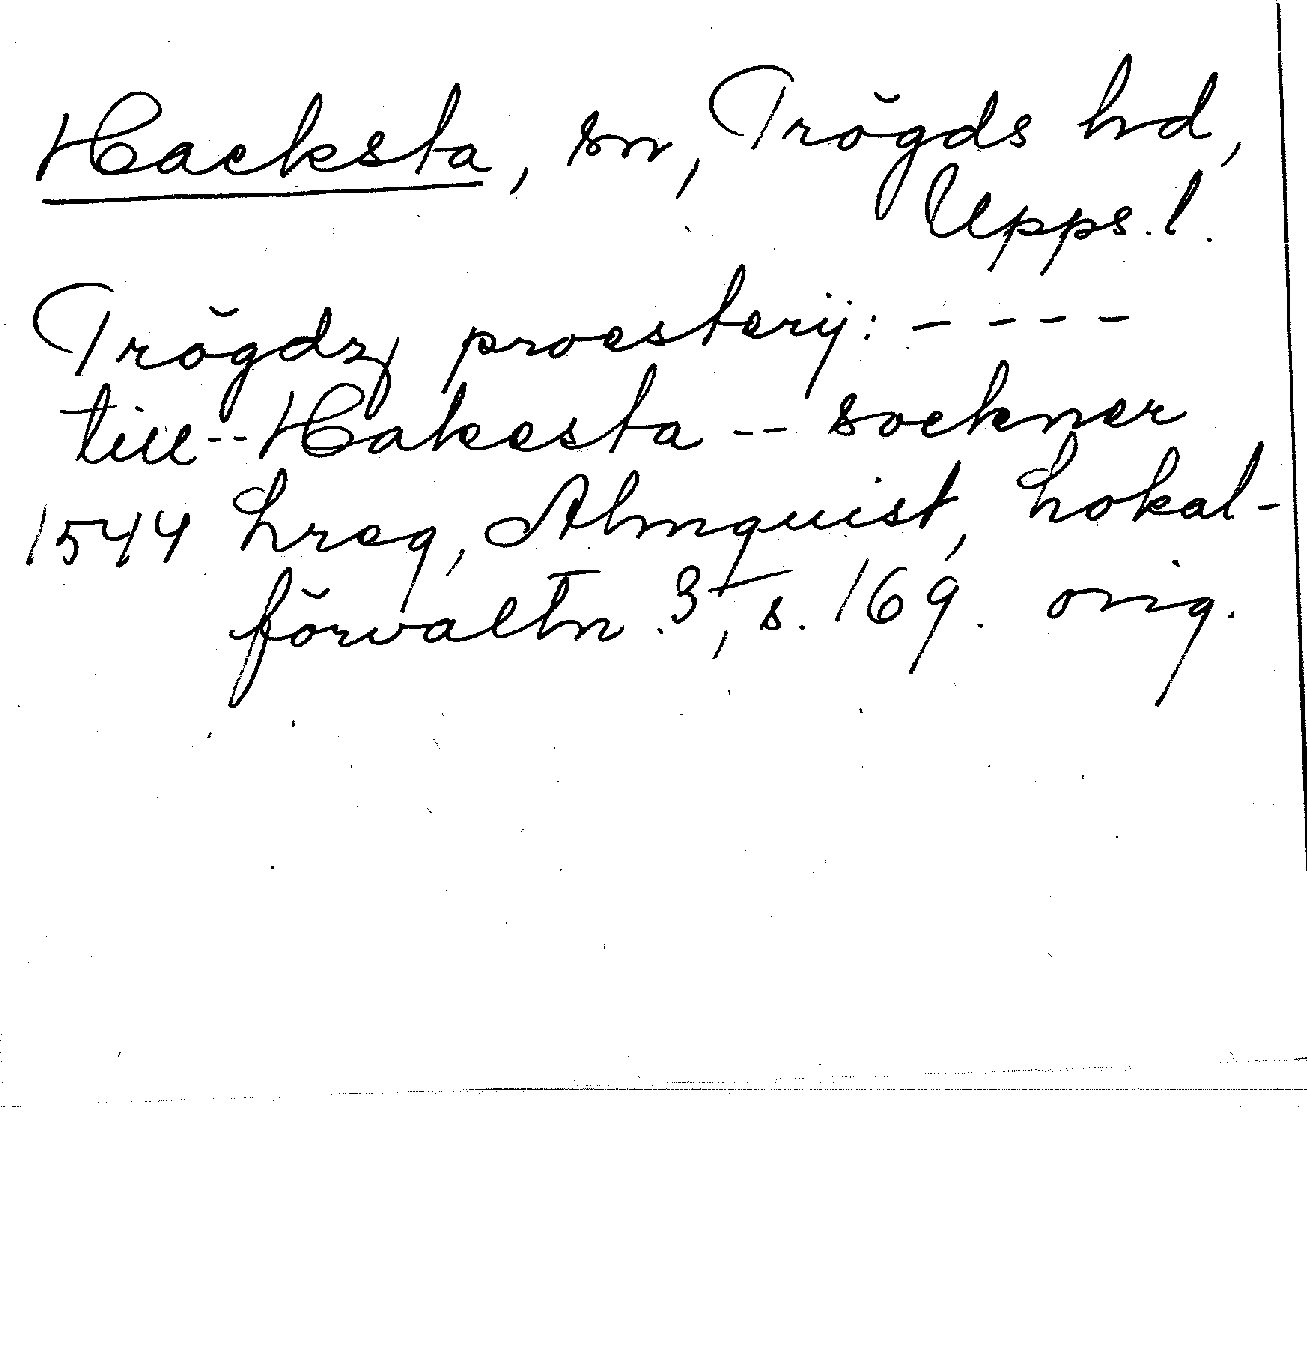 Hacksta, sn, Trögds hd,
Upps. l.
Trögdz proesterij: ----
till -- Hakesta -- sockner
1544 Lreg, Almquist, Lokal-
förvaltn. 3, s. 169. orig.